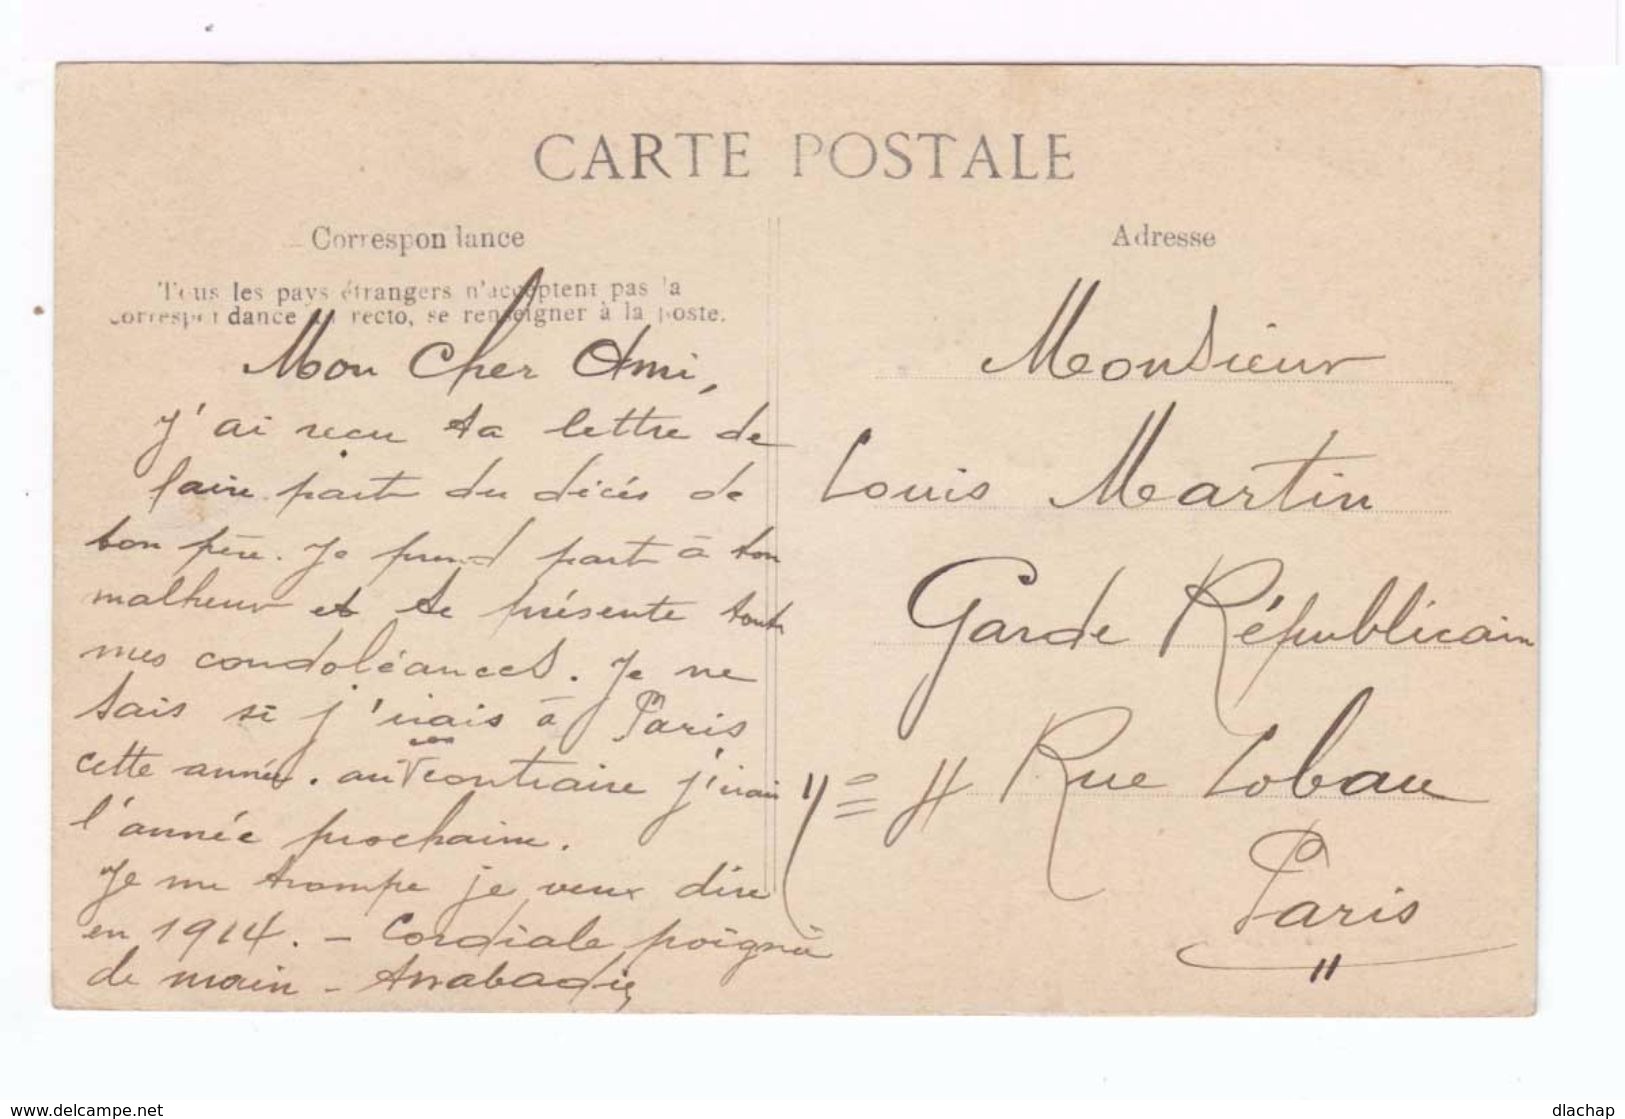 CARTE POSTALE
Correspondance
Tous les pays étrangers n'acceptent pas la
correspondance au recto, se renseigner à la poste.
Mon Cher Ami,
J'ai reçu ta lettre de
faire part du décés de
ton père. Je prend part à ton
malheur et te présente toute
mes condoléances. Je ne
sais si j'irais à Paris
cette année. au cas contraire j'irai
l'année prochaine.
Je me trompe je veux dire
en 1914. - Cordiale poignée
de main -
Adresse
Monsieur
Louis Martin
Garde Républicain
Rue Lobau
Paris
www.delcampe.net
dlachap